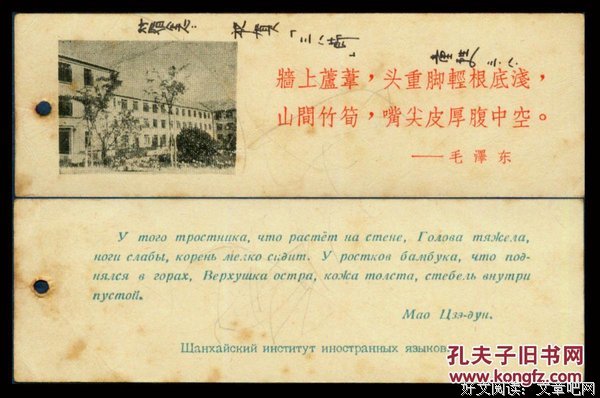 祝賀「三八節」
三.八.
牆上蘆葦，头重脚輕根底淺，
山間竹筍，嘴尖皮厚腹中空。
——毛澤东
У того тростника, что растёт на стене, Голова тяжела,
ноги слабы, корень мелко сидит. У ростков бамбука, что под-
нялся в горах, Верхушка остра, кожа толста, стебель внутри
пустой.
Мао Цзэ-дун.
Шанхайский институт иностранных языков.
孔夫子旧书网
www.kongfz.com
好文阅读：文章吧网